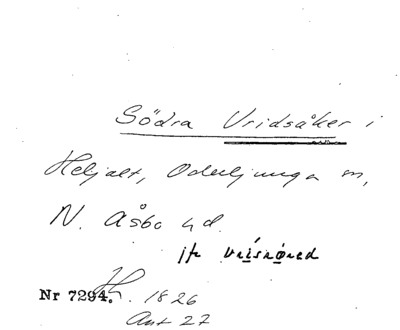 Södra Vridsåker i
Heljalt, Oderljunga sn,
N. Åsbo hd.
jfr vrisrøred
Nr 7294. H. 1826
Ant 27